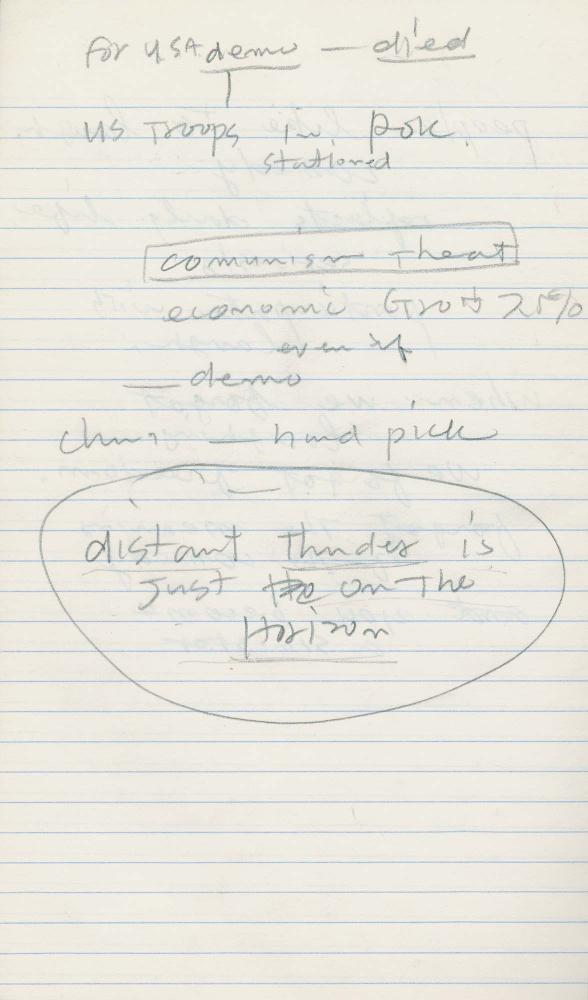 for USA demo — died
US Troops in ROK.
stationed
comunism Theat
economic Growt
even if
— demo
— hand pick
distant Thuder is
Just on The
Horizon